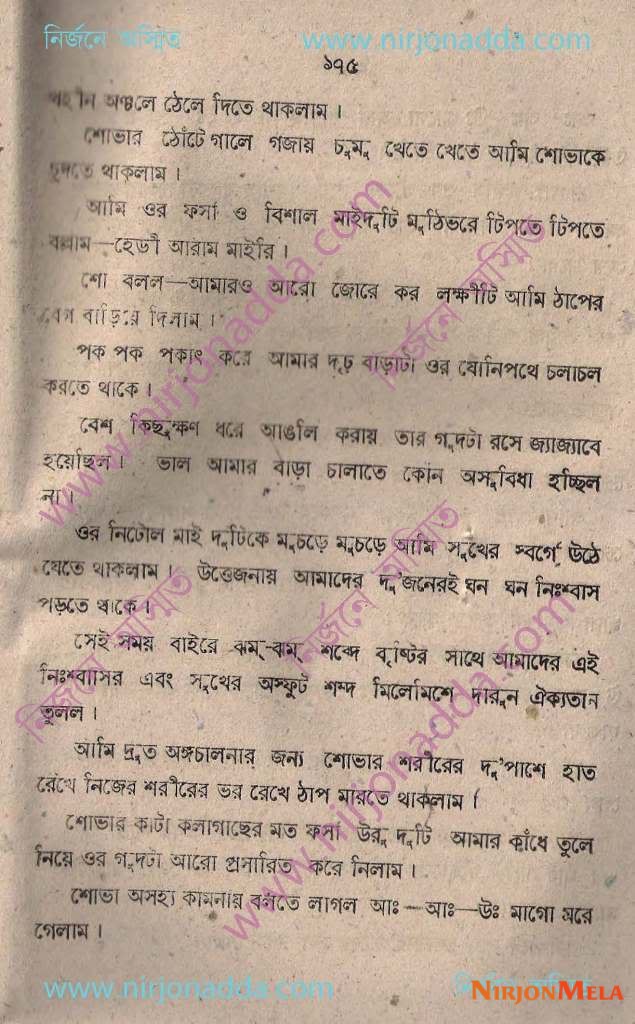 নির্জনে অস্মিত www.nirjonadda.com
১৭৫
অঞ্চলে ঠেলে দিতে থাকলাম।
শোভার ঠোঁটে গালে গলায় চুমু খেতে খেতে আমি শোভাকে
চুদতে থাকলাম।
আমি ওর ফর্সা ও বিশাল মাইদুটি মুঠিভরে টিপতে টিপতে
বল্লাম—হেভী আরাম মাইরি।
শো বলল—আমারও আরো জোরে কর লক্ষীটি আমি ঠাপের
বেগ বাড়িয়ে দিলাম।
পক পক পকাৎ করে আমার দৃঢ় বাড়াটা ওর যোনিপথে চলাচল
করতে থাকে।
বেশ কিছুক্ষণ ধরে আঙলি করায় তার গুদটা রসে জ্যাজ্যাবে
হয়েছিল। ভাল আমার বাড়া চালাতে কোন অসুবিধা হচ্ছিল
না।
ওর নিটোল মাই দুটিকে মুচড়ে মুচড়ে আমি সুখের স্বর্গে উঠে
যেতে থাকলাম। উত্তেজনায় আমাদের দু'জনেরই ঘন ঘন নিঃশ্বাস
পড়তে থাকে।
সেই সময় বাইরে ঝম্-ঝম্ শব্দে বৃষ্টির সাথে আমাদের এই
নিঃশ্বাসের এবং সুখের অস্ফুট শব্দ মিলেমিশে দারুন ঐক্যতান
তুলল।
আমি দ্রুত অঙ্গচালনার জন্য শোভার শরীরের দু'পাশে হাত
রেখে নিজের শরীরের ভর রেখে ঠাপ মারতে থাকলাম।
শোভার কাটা কলাগাছের মত ফর্সা উরু দুটি আমার কাঁধে তুলে
নিয়ে ওর গুদটা আরো প্রসারিত করে নিলাম।
শোভা অসহ্য কামনায় বলতে লাগল আঃ—আঃ—উঃ মাগো মরে
গেলাম।
www.nirjonadda.com
NIRJONMELA